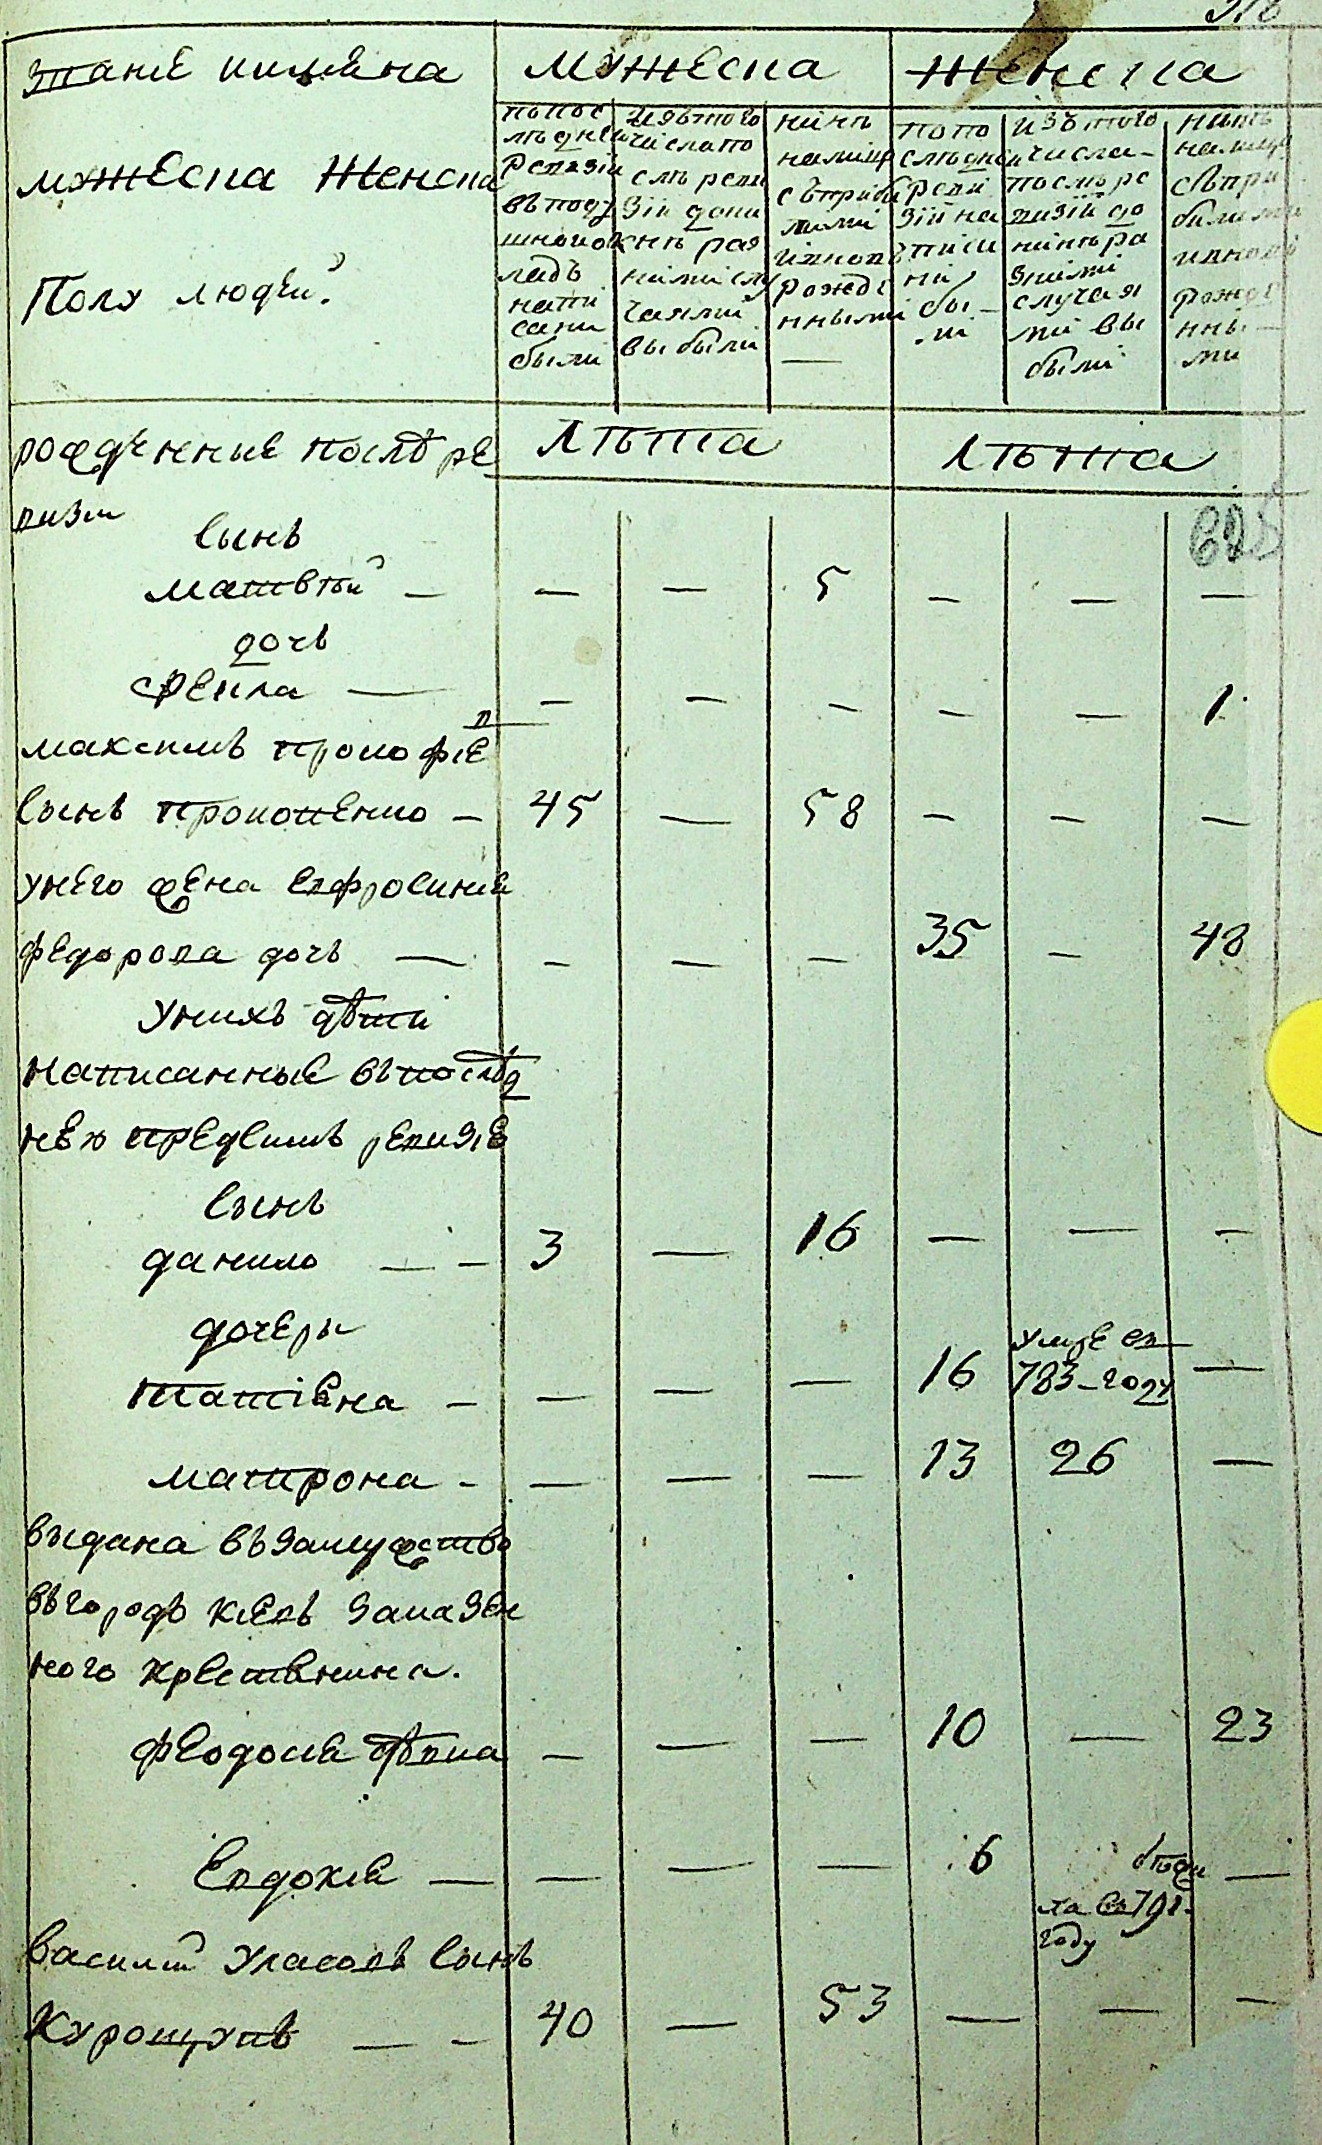 звание имяна
мужеска Женска
Полу людей.
мужеска
женска
по пос
лѣдней
ревизіи
въ поду
шной ок
ладъ
напи
саны
были
изътого
числа по
слѣ реви
зіи до ни
нѣ раз
ними слу
чаями
выбыли
нинѣ
налице
съприбы
лыми
и вновь
рожде
нными
по по
слѣдней
реви
зіи на
писа
ни
бы
ли
изътого
числа
послѣ ре
визіи до
нинѣ ра
зними
случая
ми вы
были
нинѣ
налице
съпри
былыми
и вновь
рожде
нны
ми
рожденные послѣ ре
визіи
Лѣта
Лѣта
сынъ
матвѣй — — — 5 — — —
дочь
фекла — — — — — — 1
максимъ прокофіе
в
сынъ прокопенко — 45 — 58 — — —
унего жена евфросиния
федорова дочь — — — — 35 — 48
унихъ дѣти
написанные въпослѣд
ней предсимъ ревизіе
сынъ
данило — — 3 — 16 — — —
дочеры
татіяна — — — — 16 умре въ 783-году —
матрона — — — — 13 26 —
выдана възамужство
въгородъ кіевъ заказен
ного крестянина.
феодосия дѣвка — — — 10 — 23
Евдокия — — — — 6 бѣжа
ла въ 791.
году —
василий уласовъ сынъ
Курощупъ — — 40 — 53 — — —